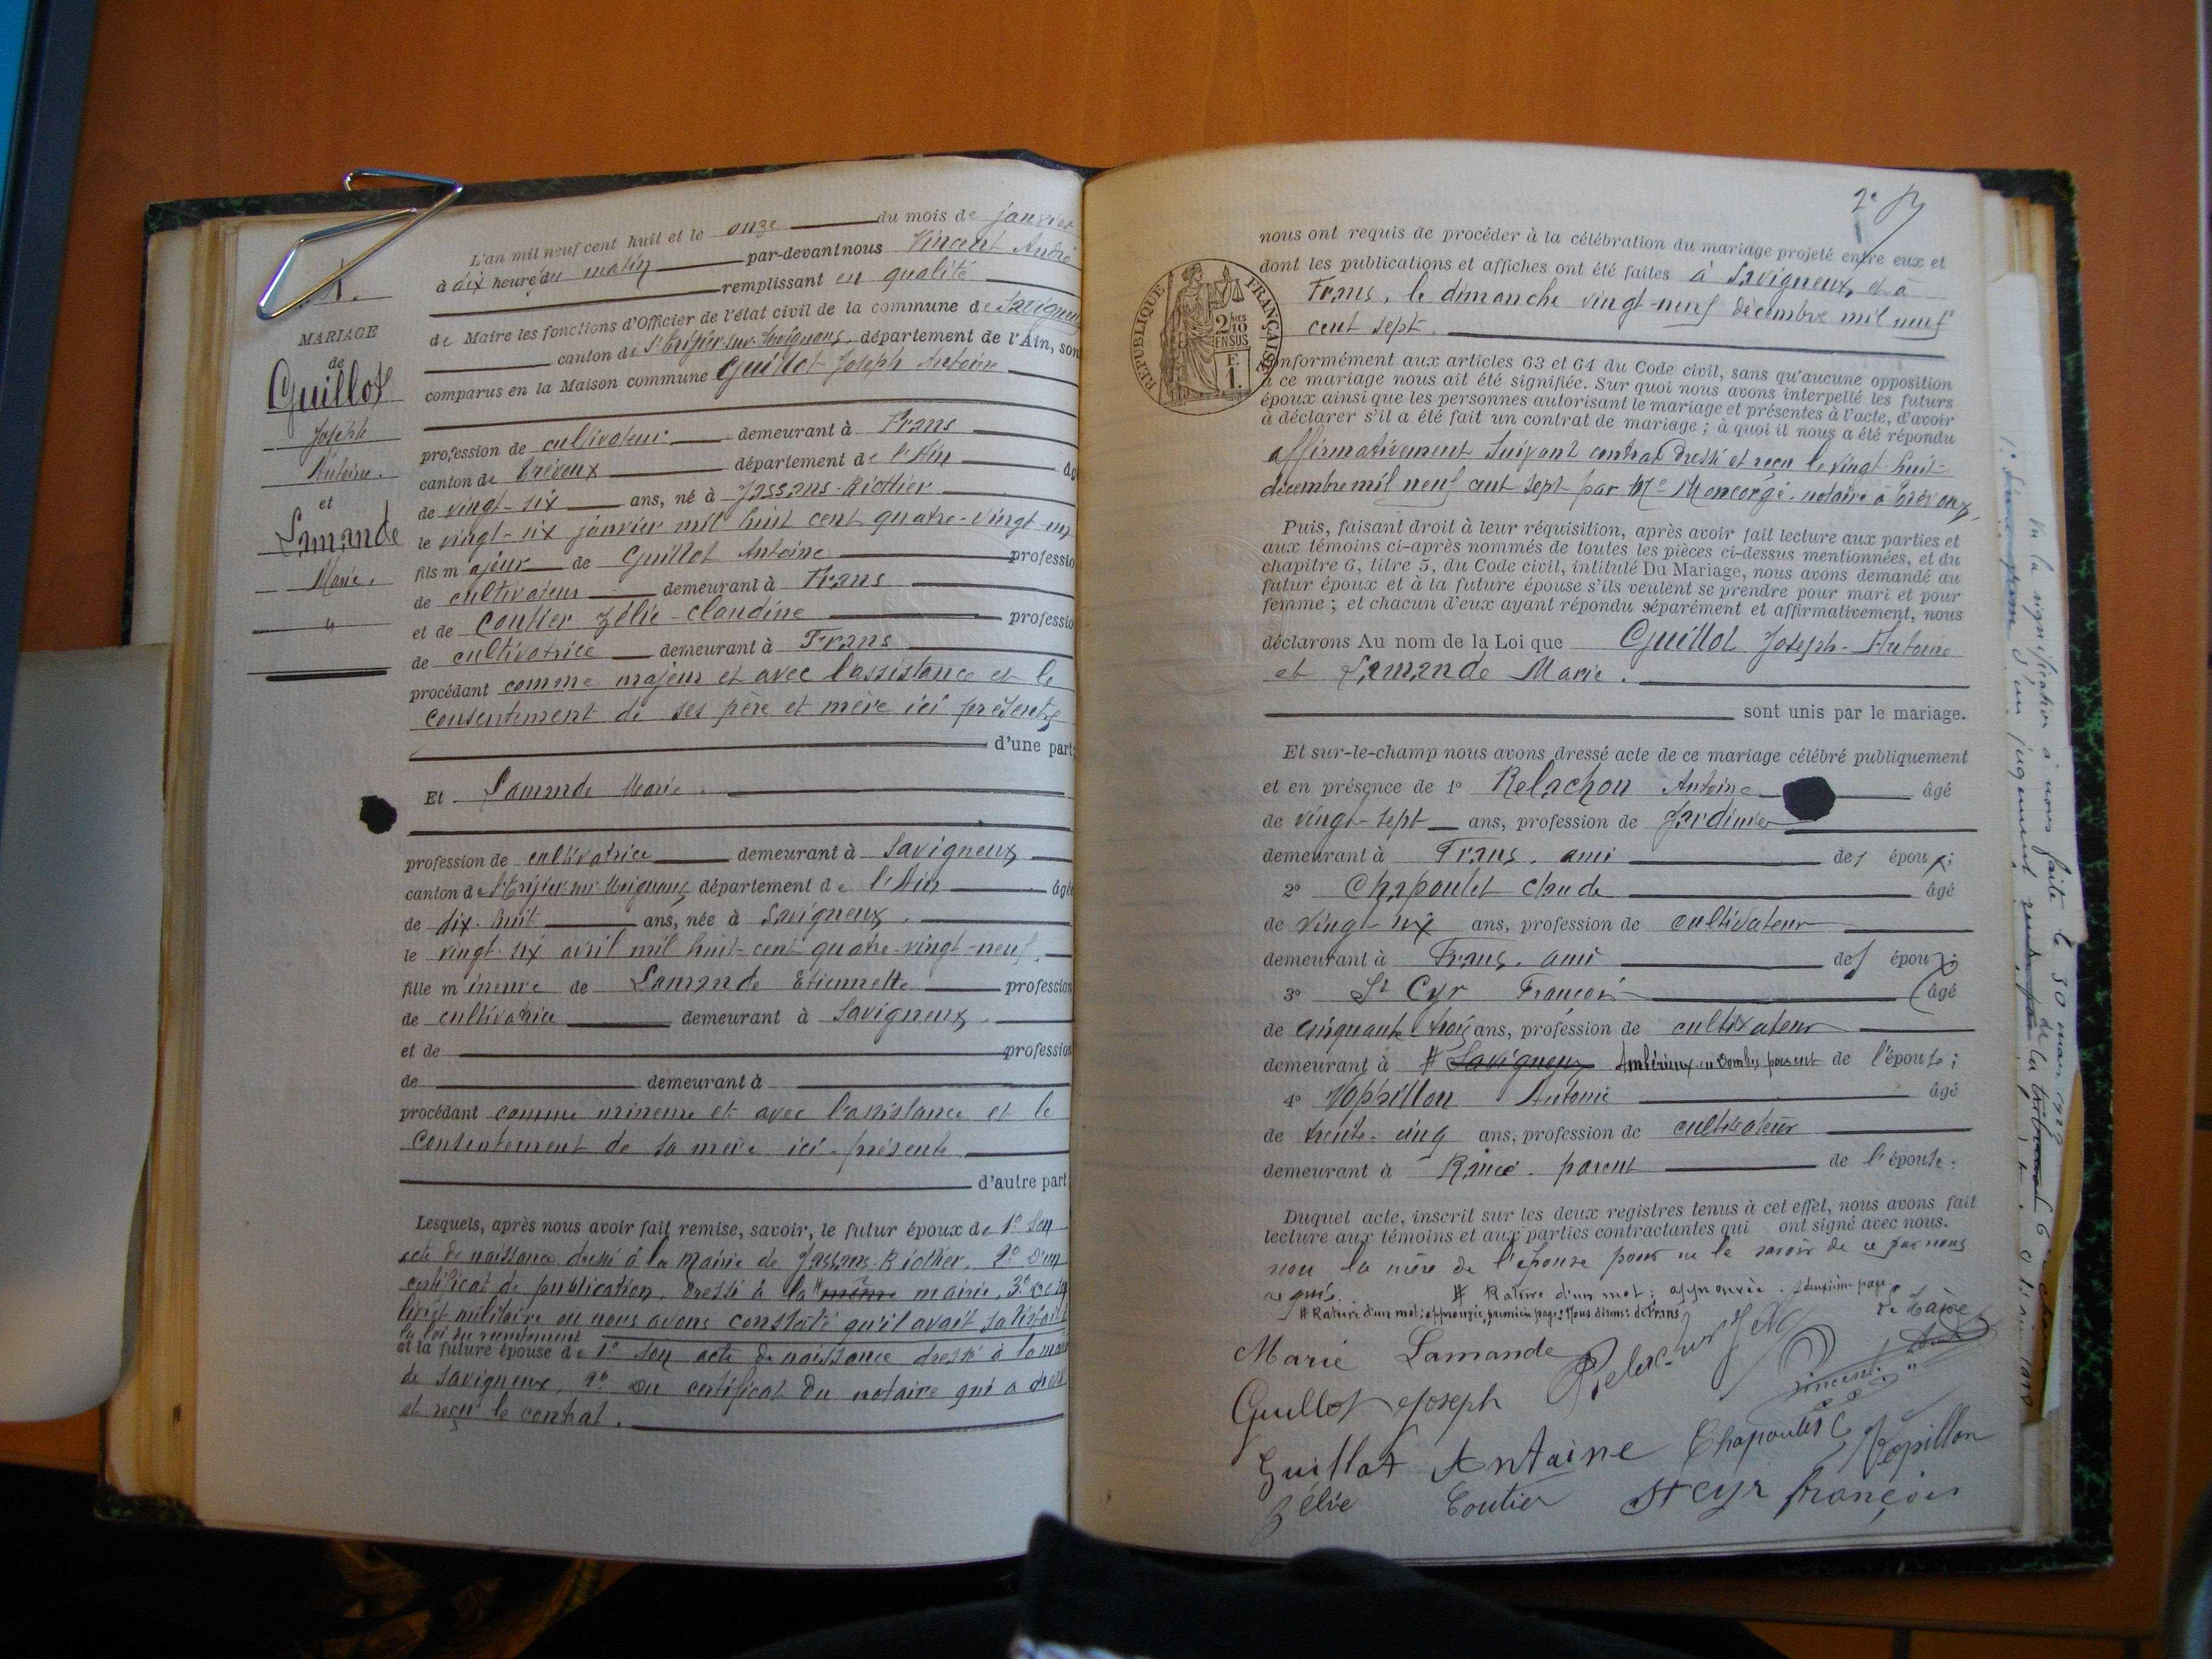 1.
MARIAGE
de
Guillot
Joseph
Antoine.
et
Lamande
Marie.
"
L'an mil neuf cent huit et le onze du mois de janvier
à dix heures du matin par-devant nous Vincent André
remplissant en qualité
de Maire les fonctions d'Officier de l'état civil de la commune de Savigneux
canton de St Trivier-sur-Moignans, département de l'Ain, son
comparus en la Maison commune Guillot Joseph Antoine
profession de cultivateur demeurant à Frans
canton de Trévoux département de l'Ain âgé
de vingt-six ans, né à Jassans-Riottier
le vingt-six janvier mil huit cent quatre-vingt-un
fils majeur de Guillot Antoine profession
de cultivateur demeurant à Frans
et de Coutier Zélie-Claudine profession
de cultivatrice demeurant à Frans
procédant comme majeur et avec l'assistance et le
consentement de ses père et mère ici présents
d'une part;
Et Lamande Marie.
profession de cultivatrice demeurant à Savigneux
canton de St Trivier-sur-Moignans, département de l'Ain âgée
de dix-huit ans, née à Savigneux.
le vingt-six avril mil huit-cent quatre-vingt-neuf.
fille mineure de Lamande Etiennette profession
de cultivatrice demeurant à Savigneux.
et de profession
de demeurant à
procédant comme mineure et avec l'assistance et le
consentement de sa mère ici présente.
d'autre part
Lesquels, après nous avoir fait remise, savoir, le futur époux de 1° Son
acte de naissance dressé à la mairie de Jassans-Riottier. 2° D'un
certificat de publication, dressé à la # même mairie, 3° de son
livret militaire où nous avons constaté qu'il avait satisfait
à la loi du recrutement
et la future épouse de 1° Son acte de naissance dressé à la mairie
de Savigneux, 2° du certificat du notaire qui a dressé
et reçu le contrat.
2e
nous ont requis de procéder à la célébration du mariage projeté entre eux et
dont les publications et affiches ont été faites à Savigneux, et à
Frans, le dimanche vingt-neuf décembre mil neuf
cent sept.
RÉPUBLIQUE FRANÇAISE
2/10 EN SUS
F.
1.
Conformément aux articles 63 et 64 du Code civil, sans qu'aucune opposition
à ce mariage nous ait été signifiée. Sur quoi nous avons interpellé les futurs
époux ainsi que les personnes autorisant le mariage et présentes à l'acte, d'avoir
à déclarer s'il a été fait un contrat de mariage; à quoi il nous a été répondu
affirmativement suivant contrat dressé et reçu le vingt-huit-
décembre mil neuf cent sept par Me Moncorgé, notaire à Trévoux.
Puis, faisant droit à leur réquisition, après avoir fait lecture aux parties et
aux témoins ci-après nommés de toutes les pièces ci-dessus mentionnées, et du
chapitre 6, titre 5, du Code civil, intitulé Du Mariage, nous avons demandé au
futur époux et à la future épouse s'ils veulent se prendre pour mari et pour
femme; et chacun d'eux ayant répondu séparément et affirmativement, nous
déclarons Au nom de la Loi que Guillot Joseph-Antoine
et Lamande Marie.
sont unis par le mariage.
Et sur-le-champ nous avons dressé acte de ce mariage célébré publiquement
et en présence de 1° Relachon Antoine âgé
de vingt-sept ans, profession de Jardinier
demeurant à Frans. ami de l'époux;
2° Chapoulet Claude âgé
de vingt-six ans, profession de cultivateur
demeurant à Frans. ami de l'époux;
3° St Cyr François âgé
de cinquante-trois ans, profession de cultivateur
demeurant à # Savigneux Ambérieux-en-Dombes parent de l'épouse;
4° Papillon Antoine âgé
de trente-cinq ans, profession de cultivateur
demeurant à Rancé. parent de l'épouse:
Duquel acte, inscrit sur les deux registres tenus à cet effet, nous avons fait
lecture aux témoins et aux parties contractantes qui ont signé avec nous.
non la mère de l'épouse pour ne le savoir de ce par nous
requis. # Rature d'un mot; approuvée. deuxième page.
# Rature d'un mot: approuvée, première page: Nous disons: de Frans
le Maire
Marie Lamande
Vincent André
Guillot Joseph
Guillot Antoine Chapoulet C Papillon
Zélie Coutier St Cyr françois
Vu la signification à nous faite le 30 mars 1929